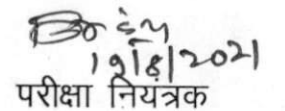 19/8/2021
परीक्षा नियत्रक